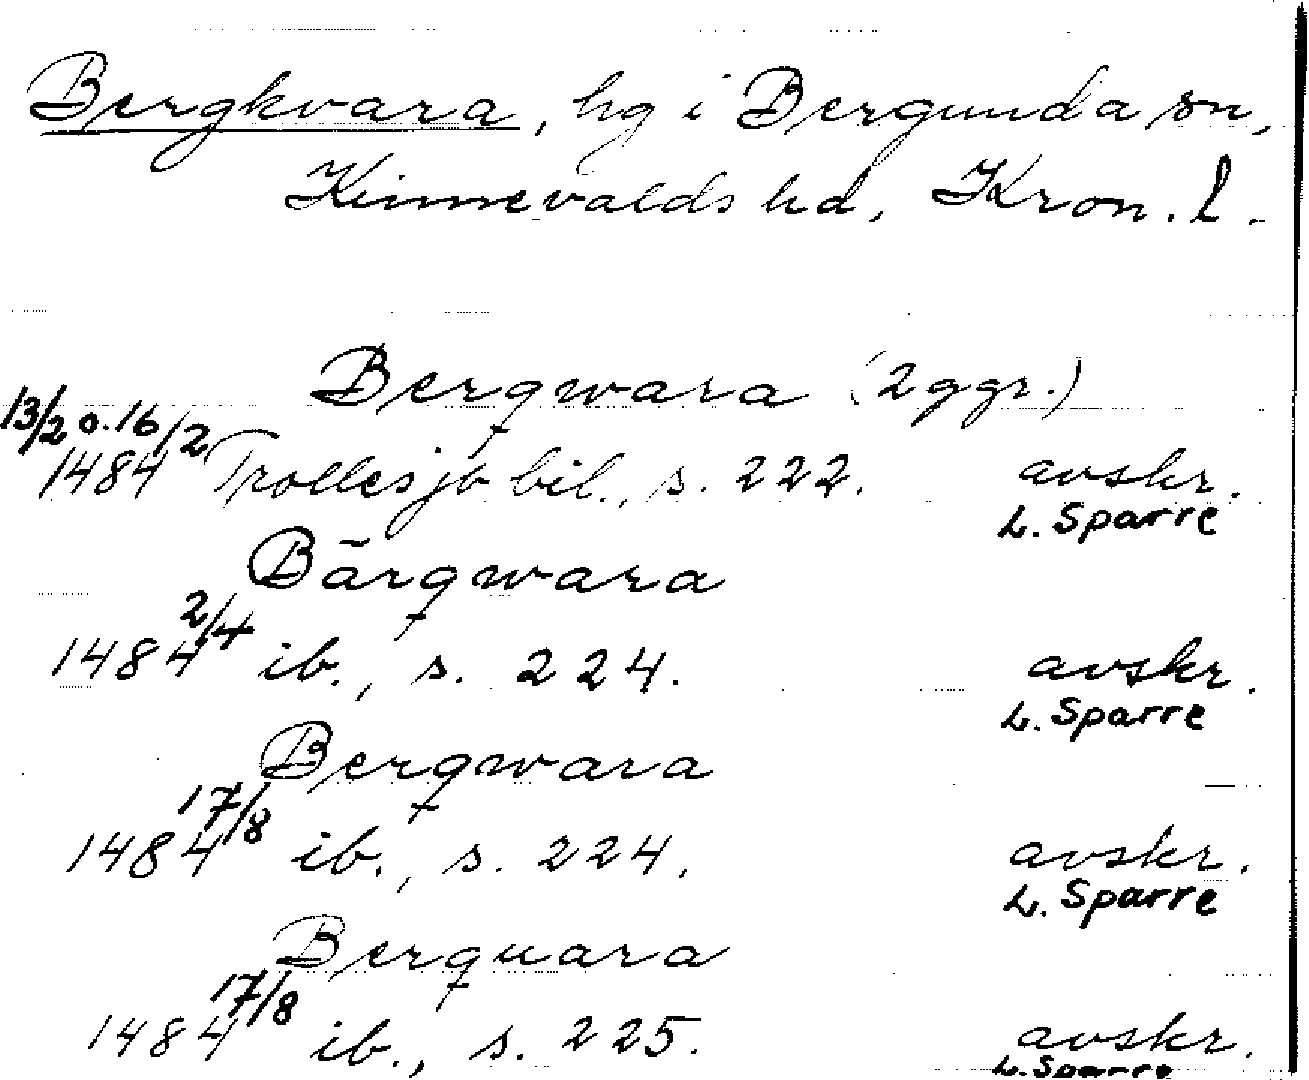 Bergkvara, hg i Bergunda sn,
Kinnevalds hd, Kron. l.
Bergqwara (2 ggr.)
13/2 o. 16/2
1484 Trolles jb bil., s. 222. avskr.
L. Sparre
Bärqwara
2/4
1484 ib., s. 224. avskr.
L. Sparre
Berqwara
17/8
1484 ib., s. 224. avskr.
L. Sparre
Berquara
17/8
1484 ib., s. 225. avskr.
L. Sparre